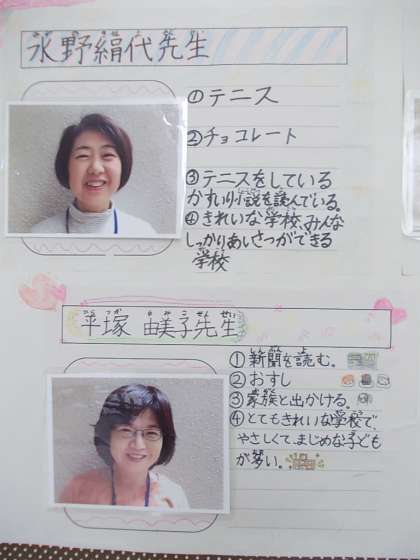 永野絹代先生
①テニス
②チョコレート
③テニスをしている
か推り小説を読んでいる。
④きれいな学校、みんな
しっかりあいさつができる
学校
平塚 由美子先生
①新聞を読む。
②おすし
③家族と出かける。
④とてもきれいな学校で、
やさしくて、まじめな子ども
が多い。